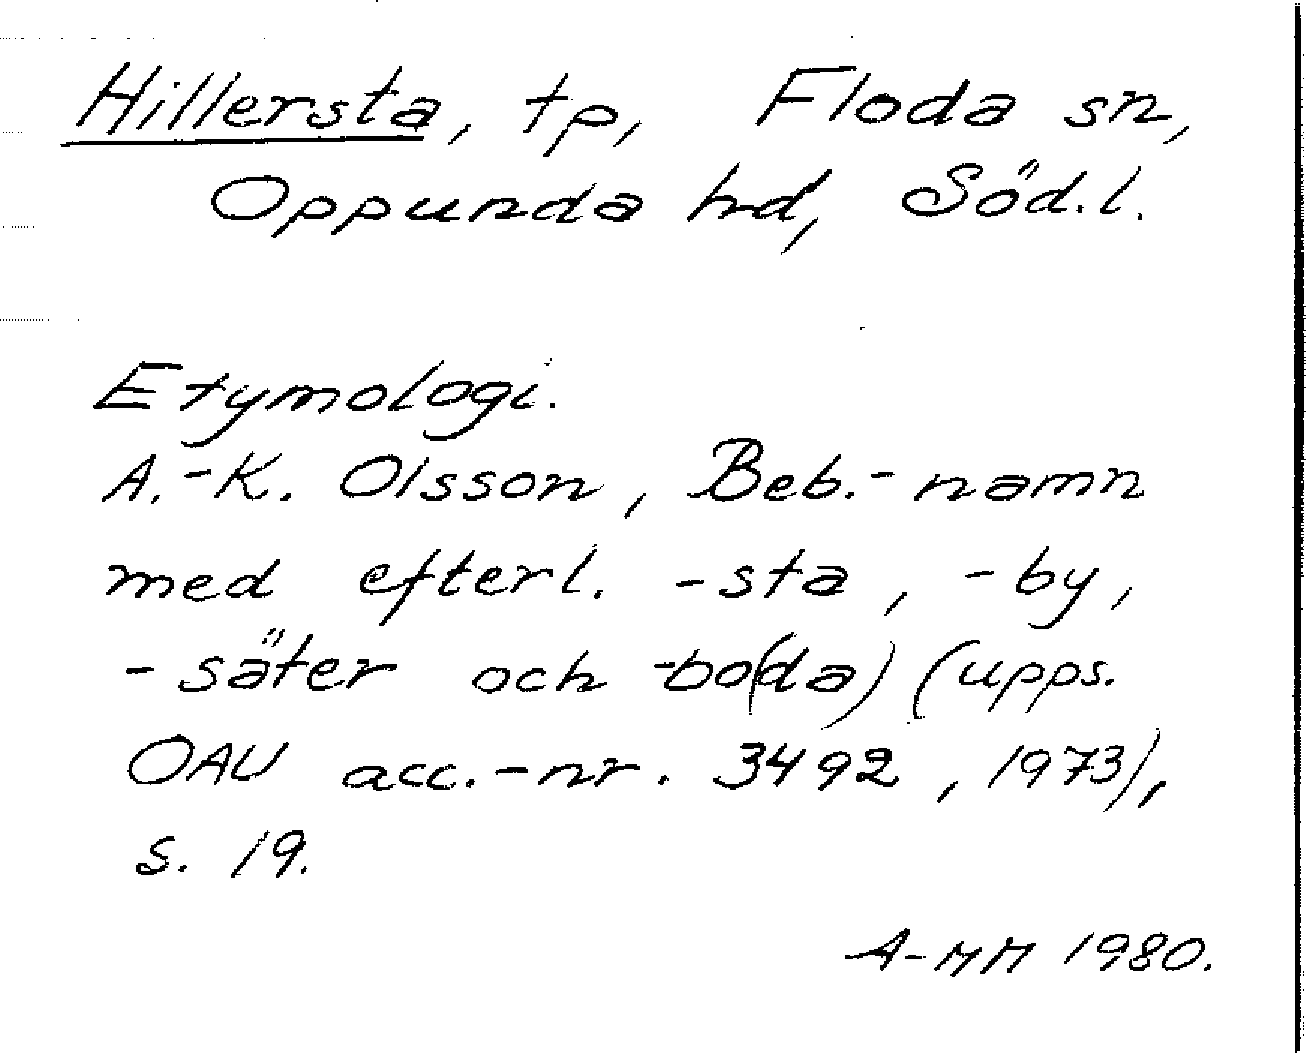 Hillersta, tp, Floda sn,
Oppunda hd, Söd.l.
Etymologi.
A.-K. Olsson, Beb.-namn
med efterl. -sta, -by,
-säter och -bo(da) (upps.
OAU acc.-nr. 3492, 1973),
s. 19.
A-MM 1980.